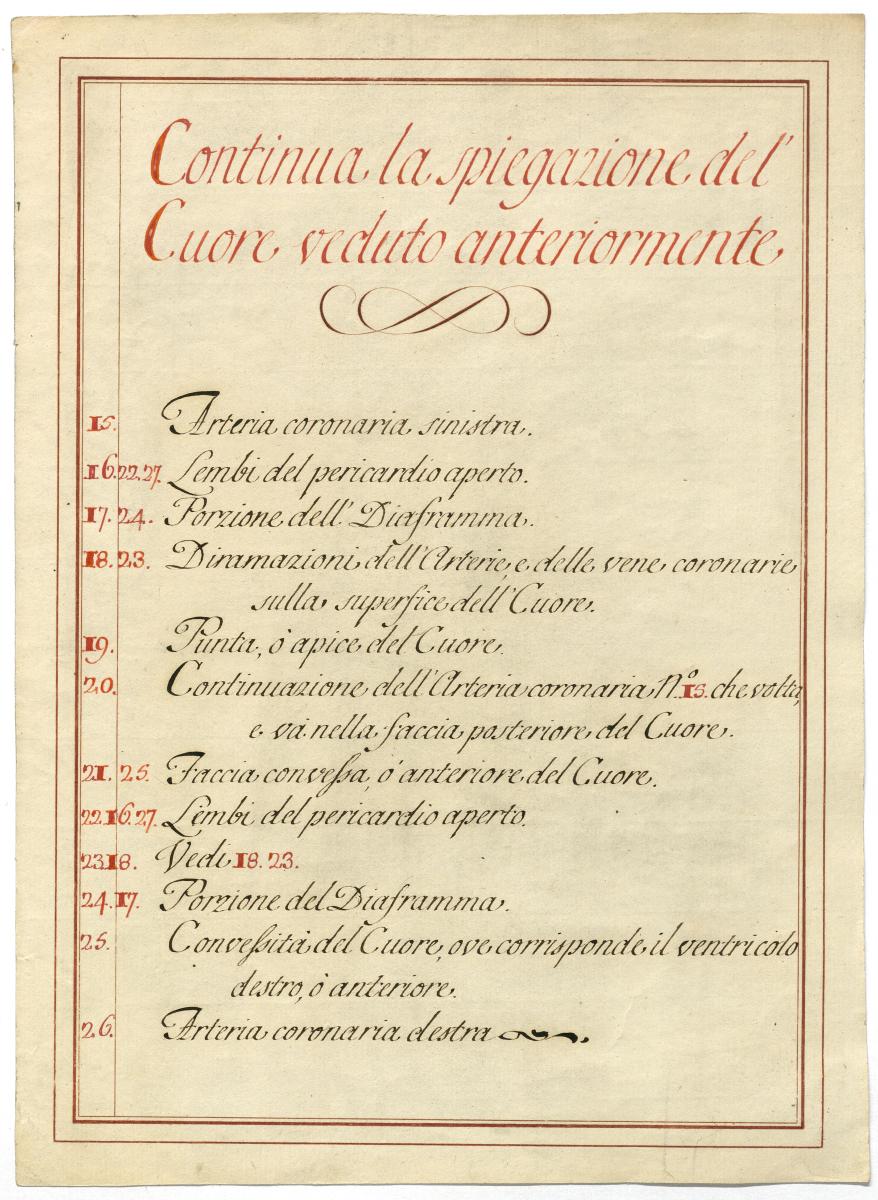 Continua la spiegazione del'
Cuore veduto anteriormente
15. Arteria coronaria sinistra.
16. 22. 27. Lembi del pericardio aperto.
17. 24. Porzione dell' Diaframma.
18. 23. Diramazioni dell'Arterie, e delle vene coronarie
sulla superfice dell'Cuore.
19. Punta, ò apice del Cuore.
20. Continuazione dell'Arteria coronaria N.º 15. che volta,
e và nella faccia posteriore del Cuore.
21. 25. Faccia convessa, ò anteriore del Cuore.
22. 16. 27. Lembi del pericardio aperto.
23 18. Vedi 18. 23.
24. 17. Porzione del Diaframma.
25. Convessità del Cuore, ove corrisponde il ventricolo
destro, ò anteriore.
26. Arteria coronaria destra